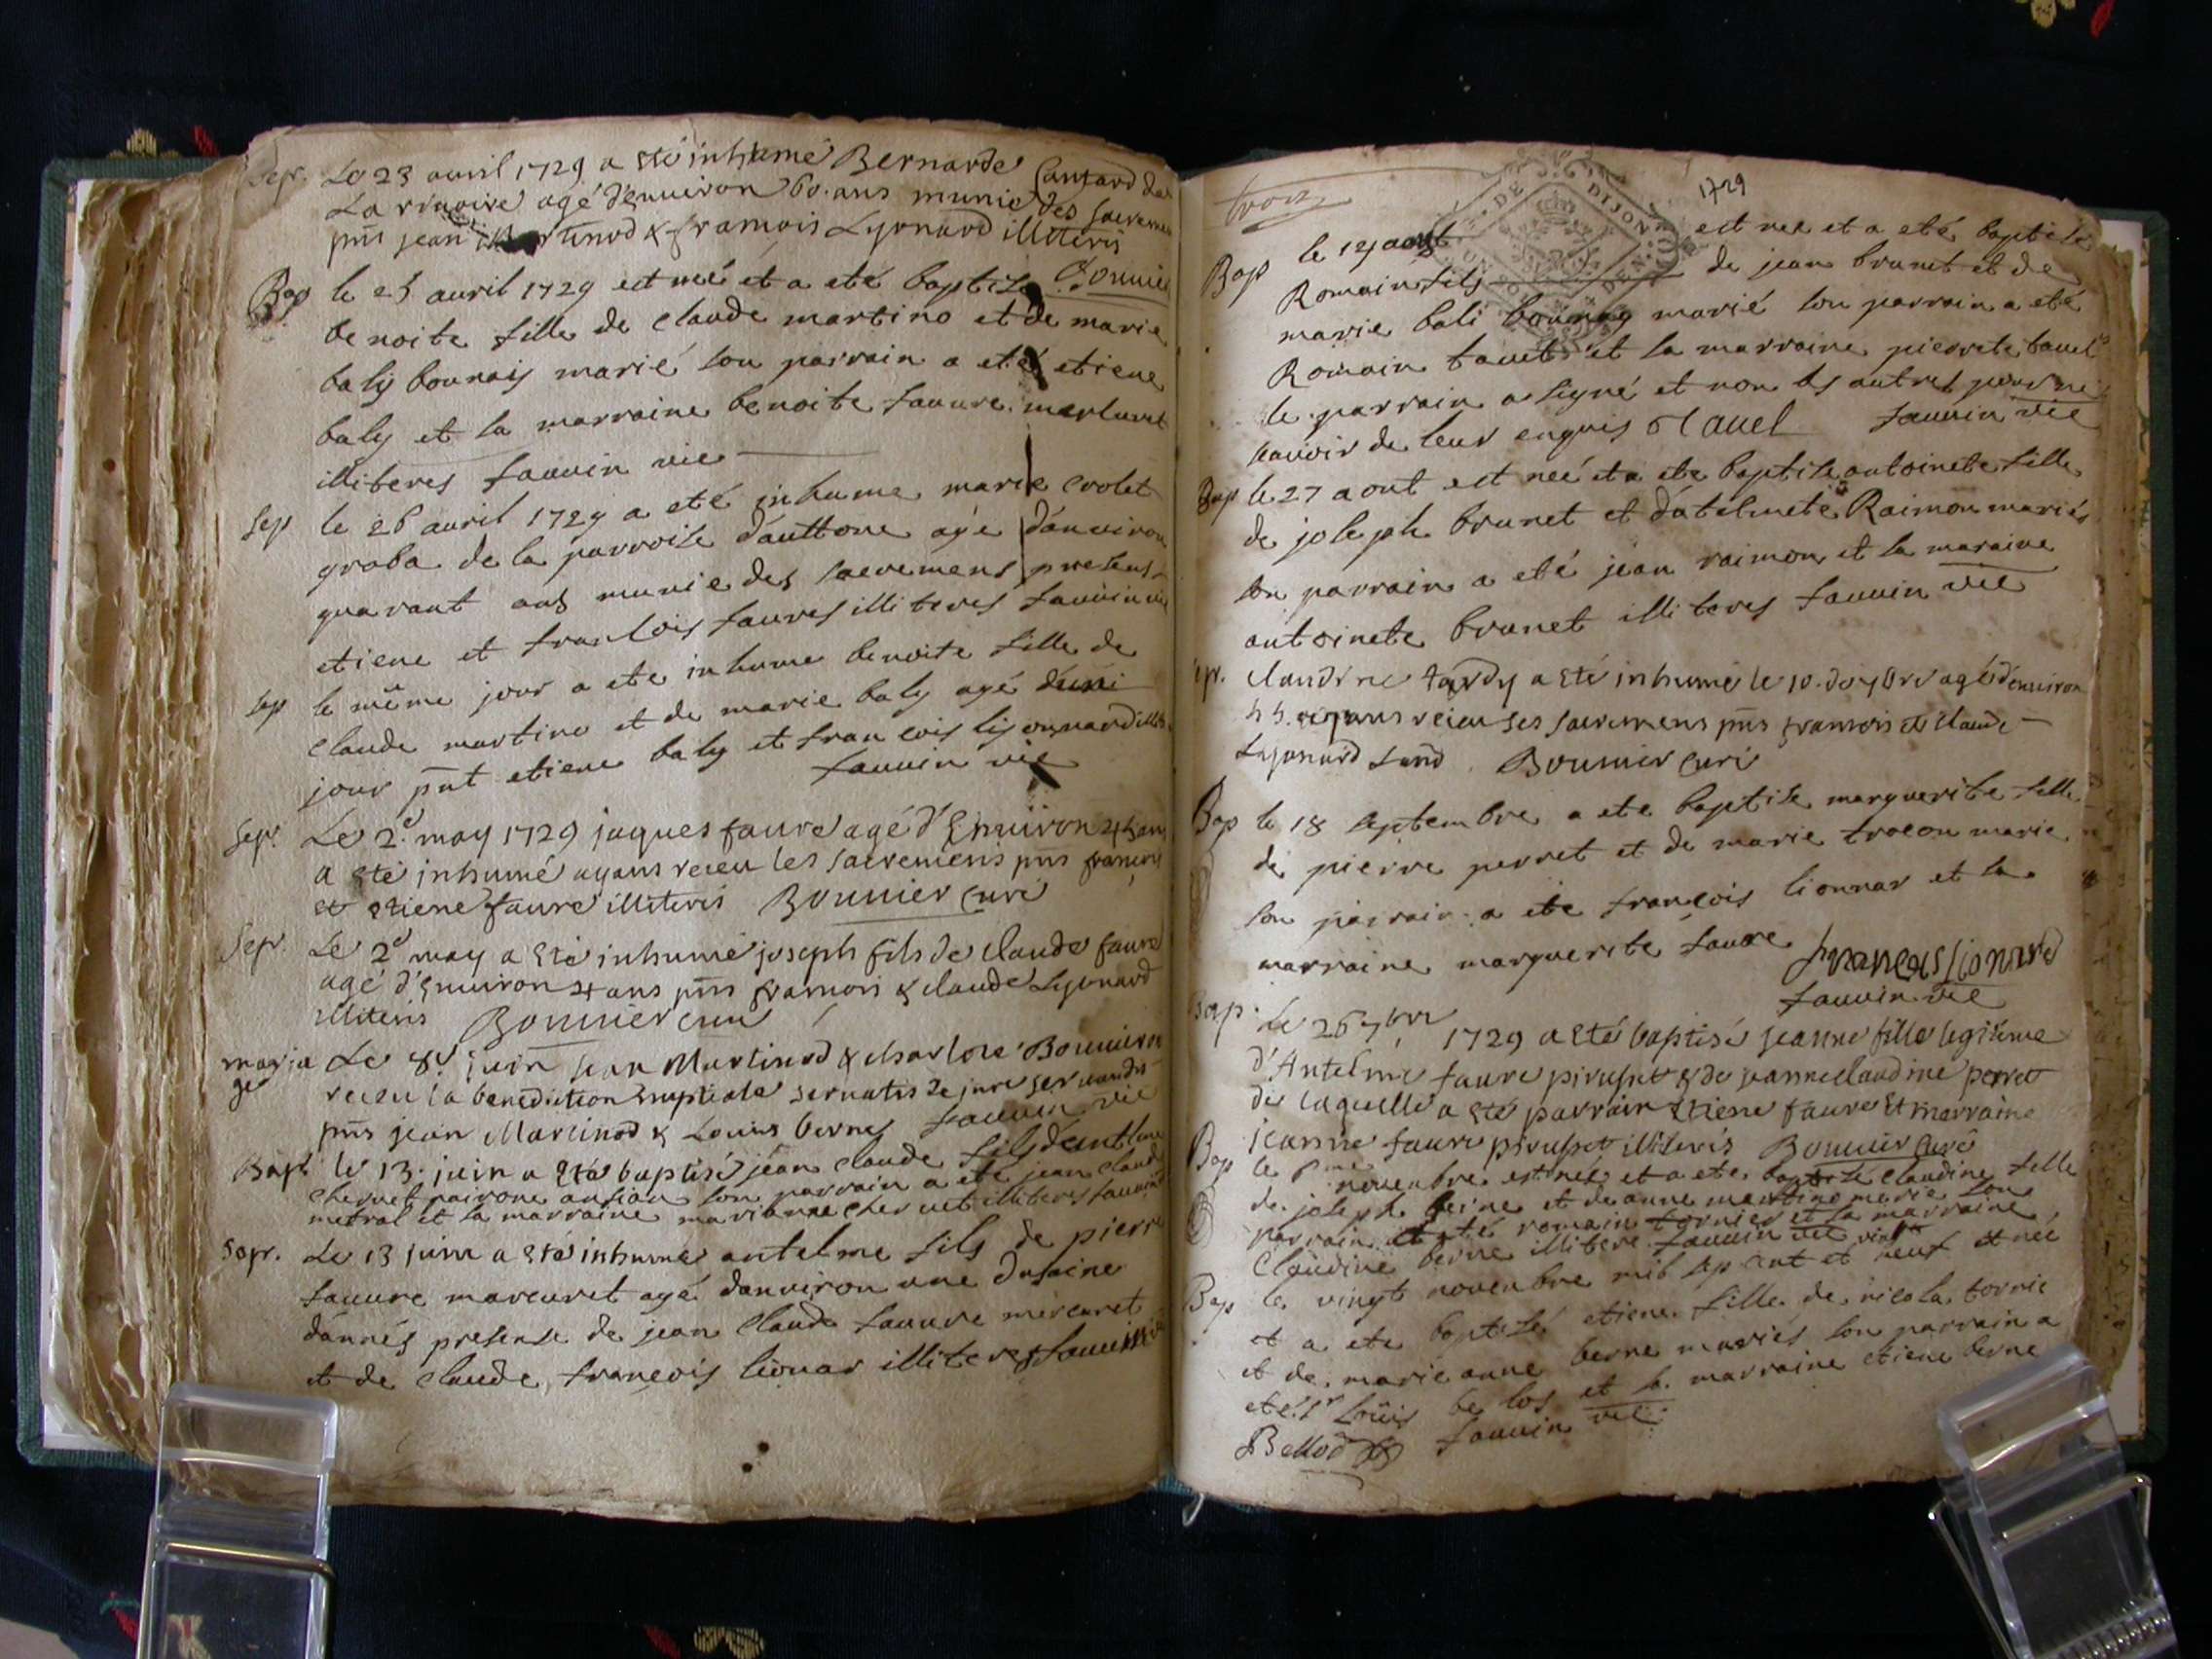 Sepr. Le 23 avril 1729 a Eté inhumé Bernarde
agé d'environ 60. ans munie des
pñs jean & françois Lyonard illiteris
Bap le 25 avril 1729 est neé et a eté baptise Bonnier
benoite fille de claude martino et de marie
baly bonnais marié son parrain a eté etiene
baly et la marraine benoite fauure
illiteres fauuin vic
Sep le 26 avril 1729 a eté inhume marie crolet
groba de la parroise agé d'anviron
quarant ans munie des sacremens presens
etiene et franSois faures illiteres fauuin vic
Sep le même jour a ete inhume benoite fille de
claude martino et de marie baly agé
jour pñt etiene baly et francois lyonnard
fauuin vic
Sepr. Le 2e. may 1729 jaques faure agé d'Environ
a Eté inhumé ayans receu les sacremens pñs françois
et Etiene faure illiteris Bonnier curé
Sepr. Le 2e may a Eté inhumé joseph fils de claude faure
agé d'Environ ans pñs françois & claude Lyonard
illiteris Bonnier curé
maria Le 8e. juin jean Martinod & charlote
ge receu la benediction nuptiale servatis de jure servandis
pñs jean Martinod & Louis bernes fauuin vic
Bapt le 13. juin a Eté baptisé jean claude fils
chernet son parrain a eté jean claude
metral et la marraine marianne chernet illiteres fauuin
Sepr. Le 13 juin a Eté inhumé antelme fils de pierre
fauure marcuret agé danviron une dusaine
dannés presense de jean claude fauure mercuret
et de claude, françois lionar illiteres fauuin
trois
1729
Bap le 19 aoust est neé et a eté baptise
Romain fils de jean brunet et de
marie bali marié son parrain a eté
Romain tauel et la marraine pierrete tauel
le parrain a signé et non les autres pour ne
scavoir de leur enquis R tauel fauuin vic
Bap le 27 aout est neé et a ete baptise antoinete fille
de joseph brunet et d'atelmete Raimon mariés
son parrain a eté jean raimon et la maraine
antoinete brunet illiteres fauuin vic
claudine tardy a Eté inhumé le 10. de 7bre agé d'environ
55. ans receu ses sacremens pñs françois et claude
Lyonard Bonnier curé
Bap le 18 septembre a ete baptise marguerite fille
de pierre perret et de marie marie
son parrain a ete françois lionnar et la
marraine marguerite faure francois lionard
fauuin vic
Bap. Le 26 7bre 1729 a Eté baptisé jeanne fille legitime
d'Antelme faure & de jeanne claudine perret
de laquelle a Eté parrain Etiene faure Et marraine
jeanne faure illiteris Bonnier curé
Bap le novenbre est neé et a ete baptisé claudine fille
de joseph berne et de anne martino marie son
parrain a eté romain tornier et la marraine
Claudine berne illitere fauuin vic
Bap le vingt novenbre mil sep cent et vint neuf et neé
et a ete baptisé etiene fille de nicola tornie
et de marie anne berne mariés son parrain a
eté sr Loüis be los et la marraine etiene berne
Bellod fauuin vic